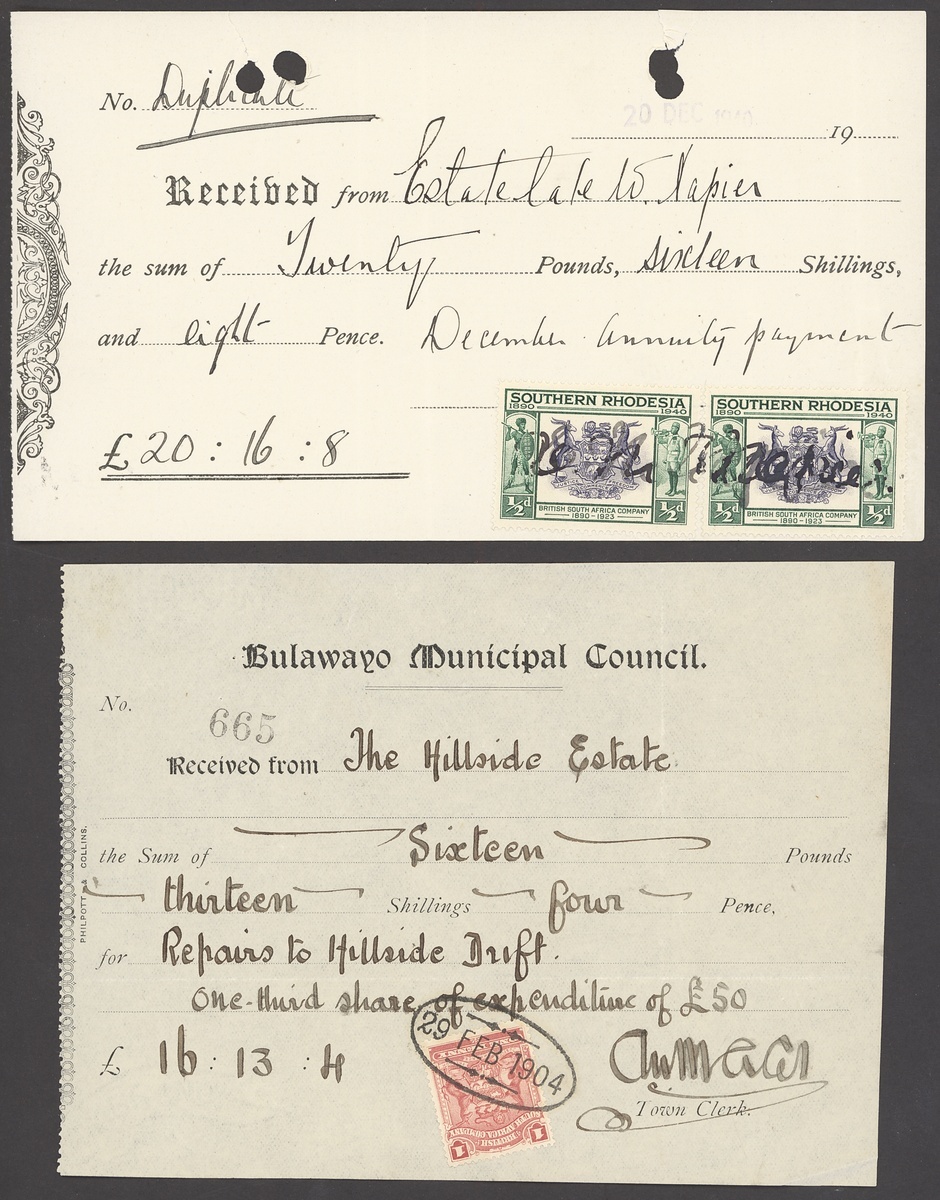 No. Duplicate
20 DEC 1940 19
Received from Estate late W. Napier
the sum of Twenty Pounds, sixteen Shillings,
and eight Pence. December annuity payment
£20 : 16 : 8
SOUTHERN RHODESIA
1890 1940
½d ½d
BRITISH SOUTH AFRICA COMPANY
1890-1923
SOUTHERN RHODESIA
1890 1940
½d ½d
BRITISH SOUTH AFRICA COMPANY
1890-1923
Bulawayo Municipal Council.
No.
665
Received from The Hillside Estate
the Sum of Sixteen Pounds
thirteen Shillings four Pence.
for Repairs to Hillside Drift.
One-third share of expenditure of £50
£ 16 : 13 : 4
29 FEB 1904
BRITISH
SOUTH AFRICA COMPANY
1 1
Town Clerk.
PHILPOTT & COLLINS.